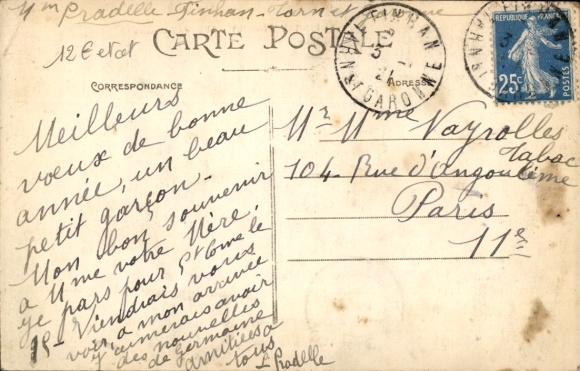 Mme Pradelle Finhan - Tarn et Garonne
CARTE POSTALE
CORRESPONDANCE
ADRESSE
FINHAN
Nn ET GARONNE
REPUBLIQUE FRANCAISE
25c
POSTES
Meilleurs
vœux de bonne
année, un beau
petit garçon -
Mon bon souvenir
a Mme votre Mère,
je pars pour St Come le
15 - Viendrais vous
voir, a mon arrivée
J'aimerais avoir
des nouvelles
de Germaine
amitiées a
tous
L Pradelle
Mr Mme Vayrolles
Tabac
104 Rue d'angoulême
Paris
11e